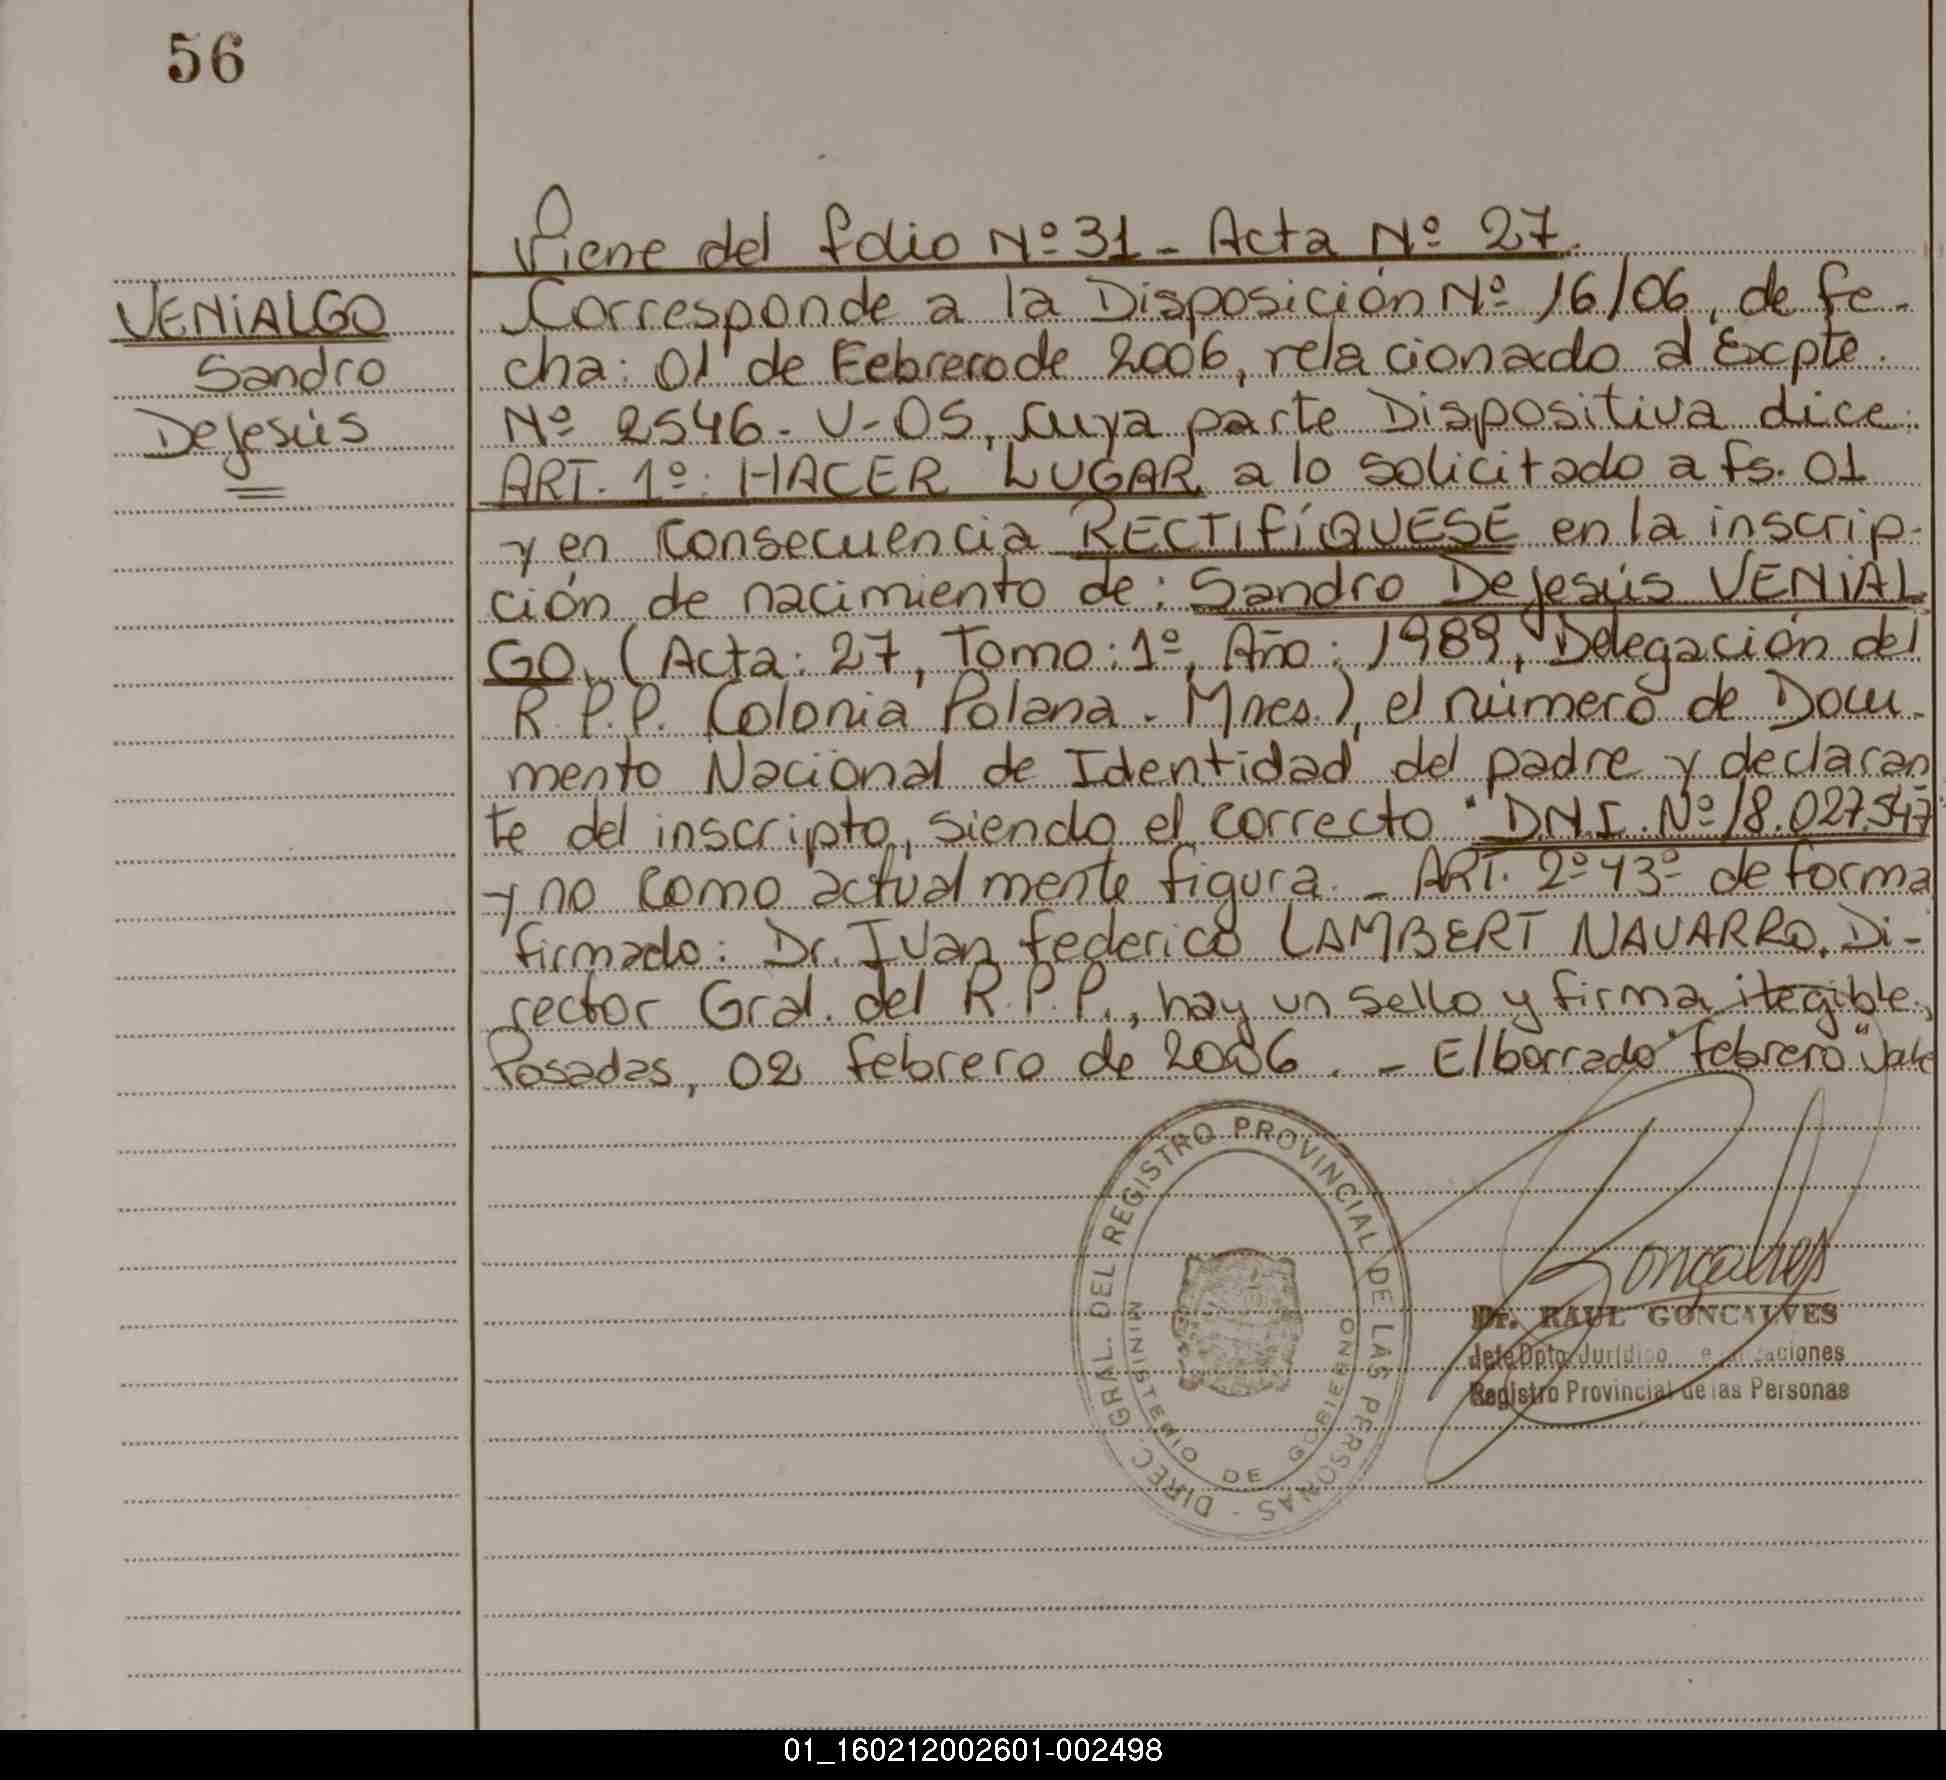 56
Viene del folio Nº 31 - Acta Nº 27.
VENIALGO
Sandro
DeJesús
Corresponde a la Disposición Nº 16/06, de fe-
cha: 01 de Febrero de 2006, relacionado al Excpte.
Nº 2546-V-05, cuya parte Dispositiva dice:
ART. 1º: HACER LUGAR a lo solicitado a fs. 01
y en consecuencia RECTIFÍQUESE en la inscrip-
ción de nacimiento de: Sandro DeJesús VENIAL
GO, (Acta: 27, Tomo: 1º, Año: 1989, Delegación del
R.P.P. Colonia Polana - Mnes.), el número de Docu-
mento Nacional de Identidad del padre y declaran
te del inscripto, siendo el correcto "D.N.I. Nº 18.027.547"
y no como actualmente figura. - ART. 2º y 3º de forma
firmado: Dr. Ivan Federico LAMBERT NAVARRO, Di-
rector Gral. del R.P.P., hay un sello y firma ilegible,
Posadas, 02 febrero de 2006. - El borrado "febrero" Vale
DIREC. GRAL. DEL REGISTRO PROVINCIAL DE LAS PERSONAS -
MINISTERIO DE GOBIERNO
Goncalves
Dr. RAUL GONCALVES
Jefe Dpto. Jurídico
Registro Provincial de las Personas
01_160212002601-002498